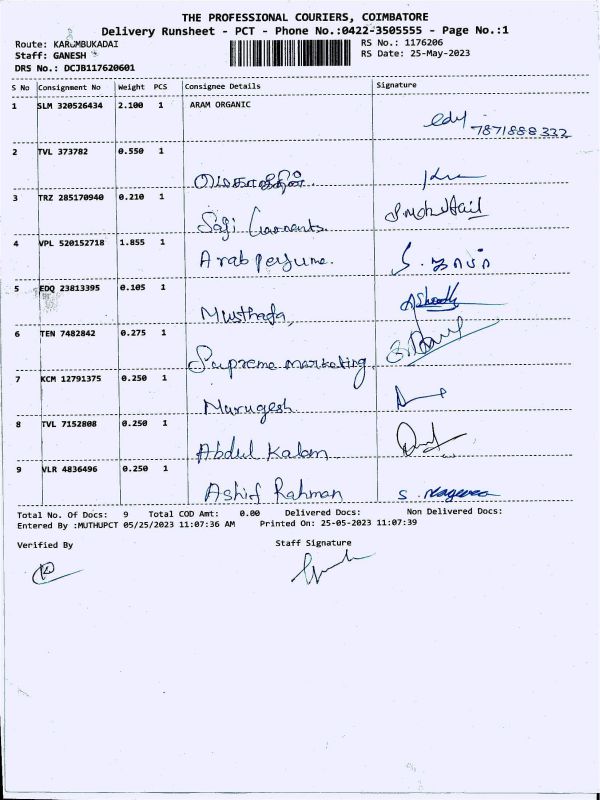 THE PROFESSIONAL COURIERS, COIMBATORE
Delivery Runsheet - PCT - Phone No.:0422-3505555 - Page No.:1
Route: KARUMBUKADAI RS No.: 1176206
Staff: GANESH RS Date: 25-May-2023
DRS No.: DCJB117620601
S No Consignment No Weight PCS Consignee Details Signature
1 SLM 320526434 2.100 1 ARAM ORGANIC
7871888322
2 TVL 373782 0.550 1
3 TRZ 285170940 0.210 1
Safi Garments
4 VPL 520152718 1.855 1
Arab perfume.
5 EDQ 23813395 0.105 1
Musthafa,
6 TEN 7482842 0.275 1
Supreme marketing
7 KCM 12791375 0.250 1
Murugesh
8 TVL 7152808 0.250 1
Abdul Kalam
9 VLR 4836496 0.250 1
Ashif Rahman
Total No. Of Docs: 9 Total COD Amt: 0.00 Delivered Docs: Non Delivered Docs:
Entered By :MUTHUPCT 05/25/2023 11:07:36 AM Printed On: 25-05-2023 11:07:39
Verified By Staff Signature